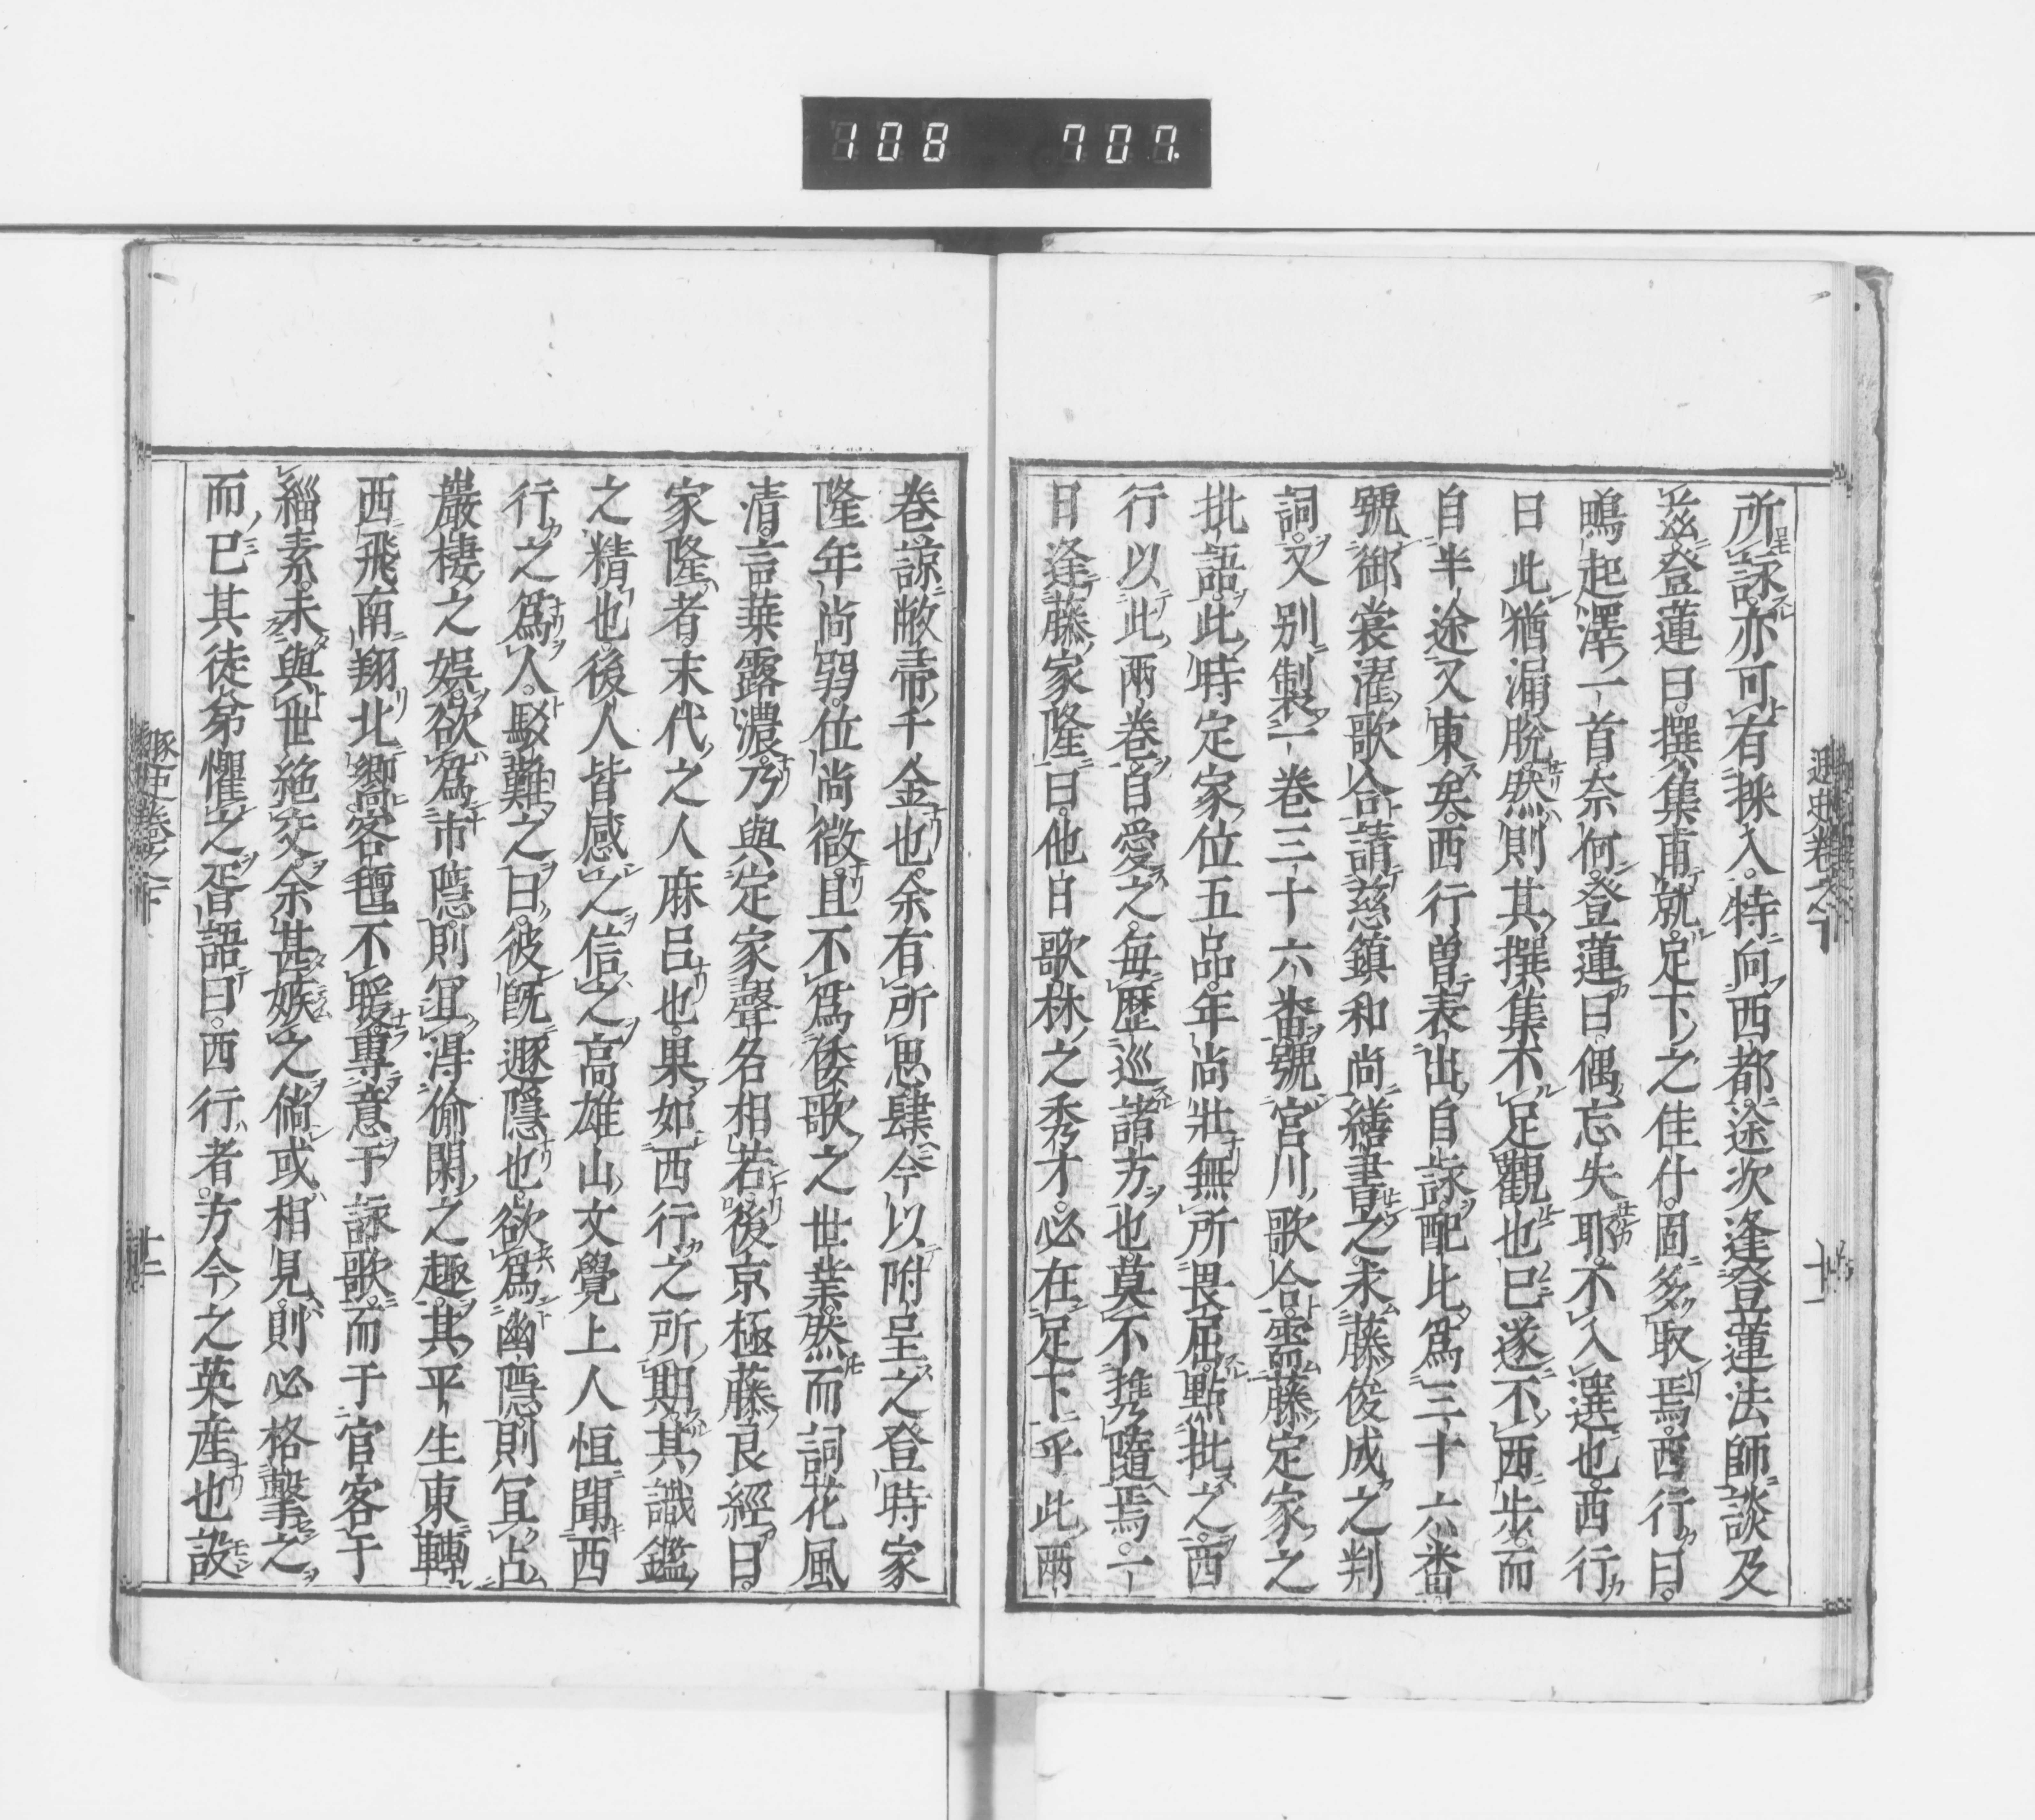 108 707
遯史卷之下
十一
所詠亦可有採入特向西都途次逢登蓮法師談及
茲登蓮曰撰集甫就足下之佳什固多取焉西行曰
鴫起澤一首奈何登蓮曰偶忘失耶不入選也西行
曰此猶漏脫然則其撰集不足觀也已遂不西步而
自半途又東矣西行曾表出自詠配比爲三十六番
號御裳濯歌合請慈鎮和尚繕書之求藤俊成之判
詞又別製一卷三十六番號宮川歌合需藤定家之
批語此時定家位五品年尚壯無所畏屈點批之西
行以此兩卷自愛之每歷巡諸方也莫不携隨焉一
日逢藤家隆曰他日歌林之秀才必在足下乎此兩
卷諒敝帚千金也余有所思肆今以附呈之登時家
隆年尚弱位尚微且不爲倭歌之世業然而詞花風
清言葉露濃乃與定家聲名相若後京極藤良經曰
家隆者末代之人麻呂也果如西行之所期其識鑑
之精也後人皆感之信之高雄山文覺上人恒聞西
行之爲人駁難之曰彼既遯隱也欲爲幽隱則宜占
巖棲之娛欲爲市隱則宜得偷閑之趣其平生東轉
西飛南翔北嚮客氈不暖專意于詠歌而于官客于
緇素未與世絶交余甚嫉之倘或相見則必格擊之
而已其徒弟懼之胥語曰西行者方今之英産也設
遯史卷之下
十二